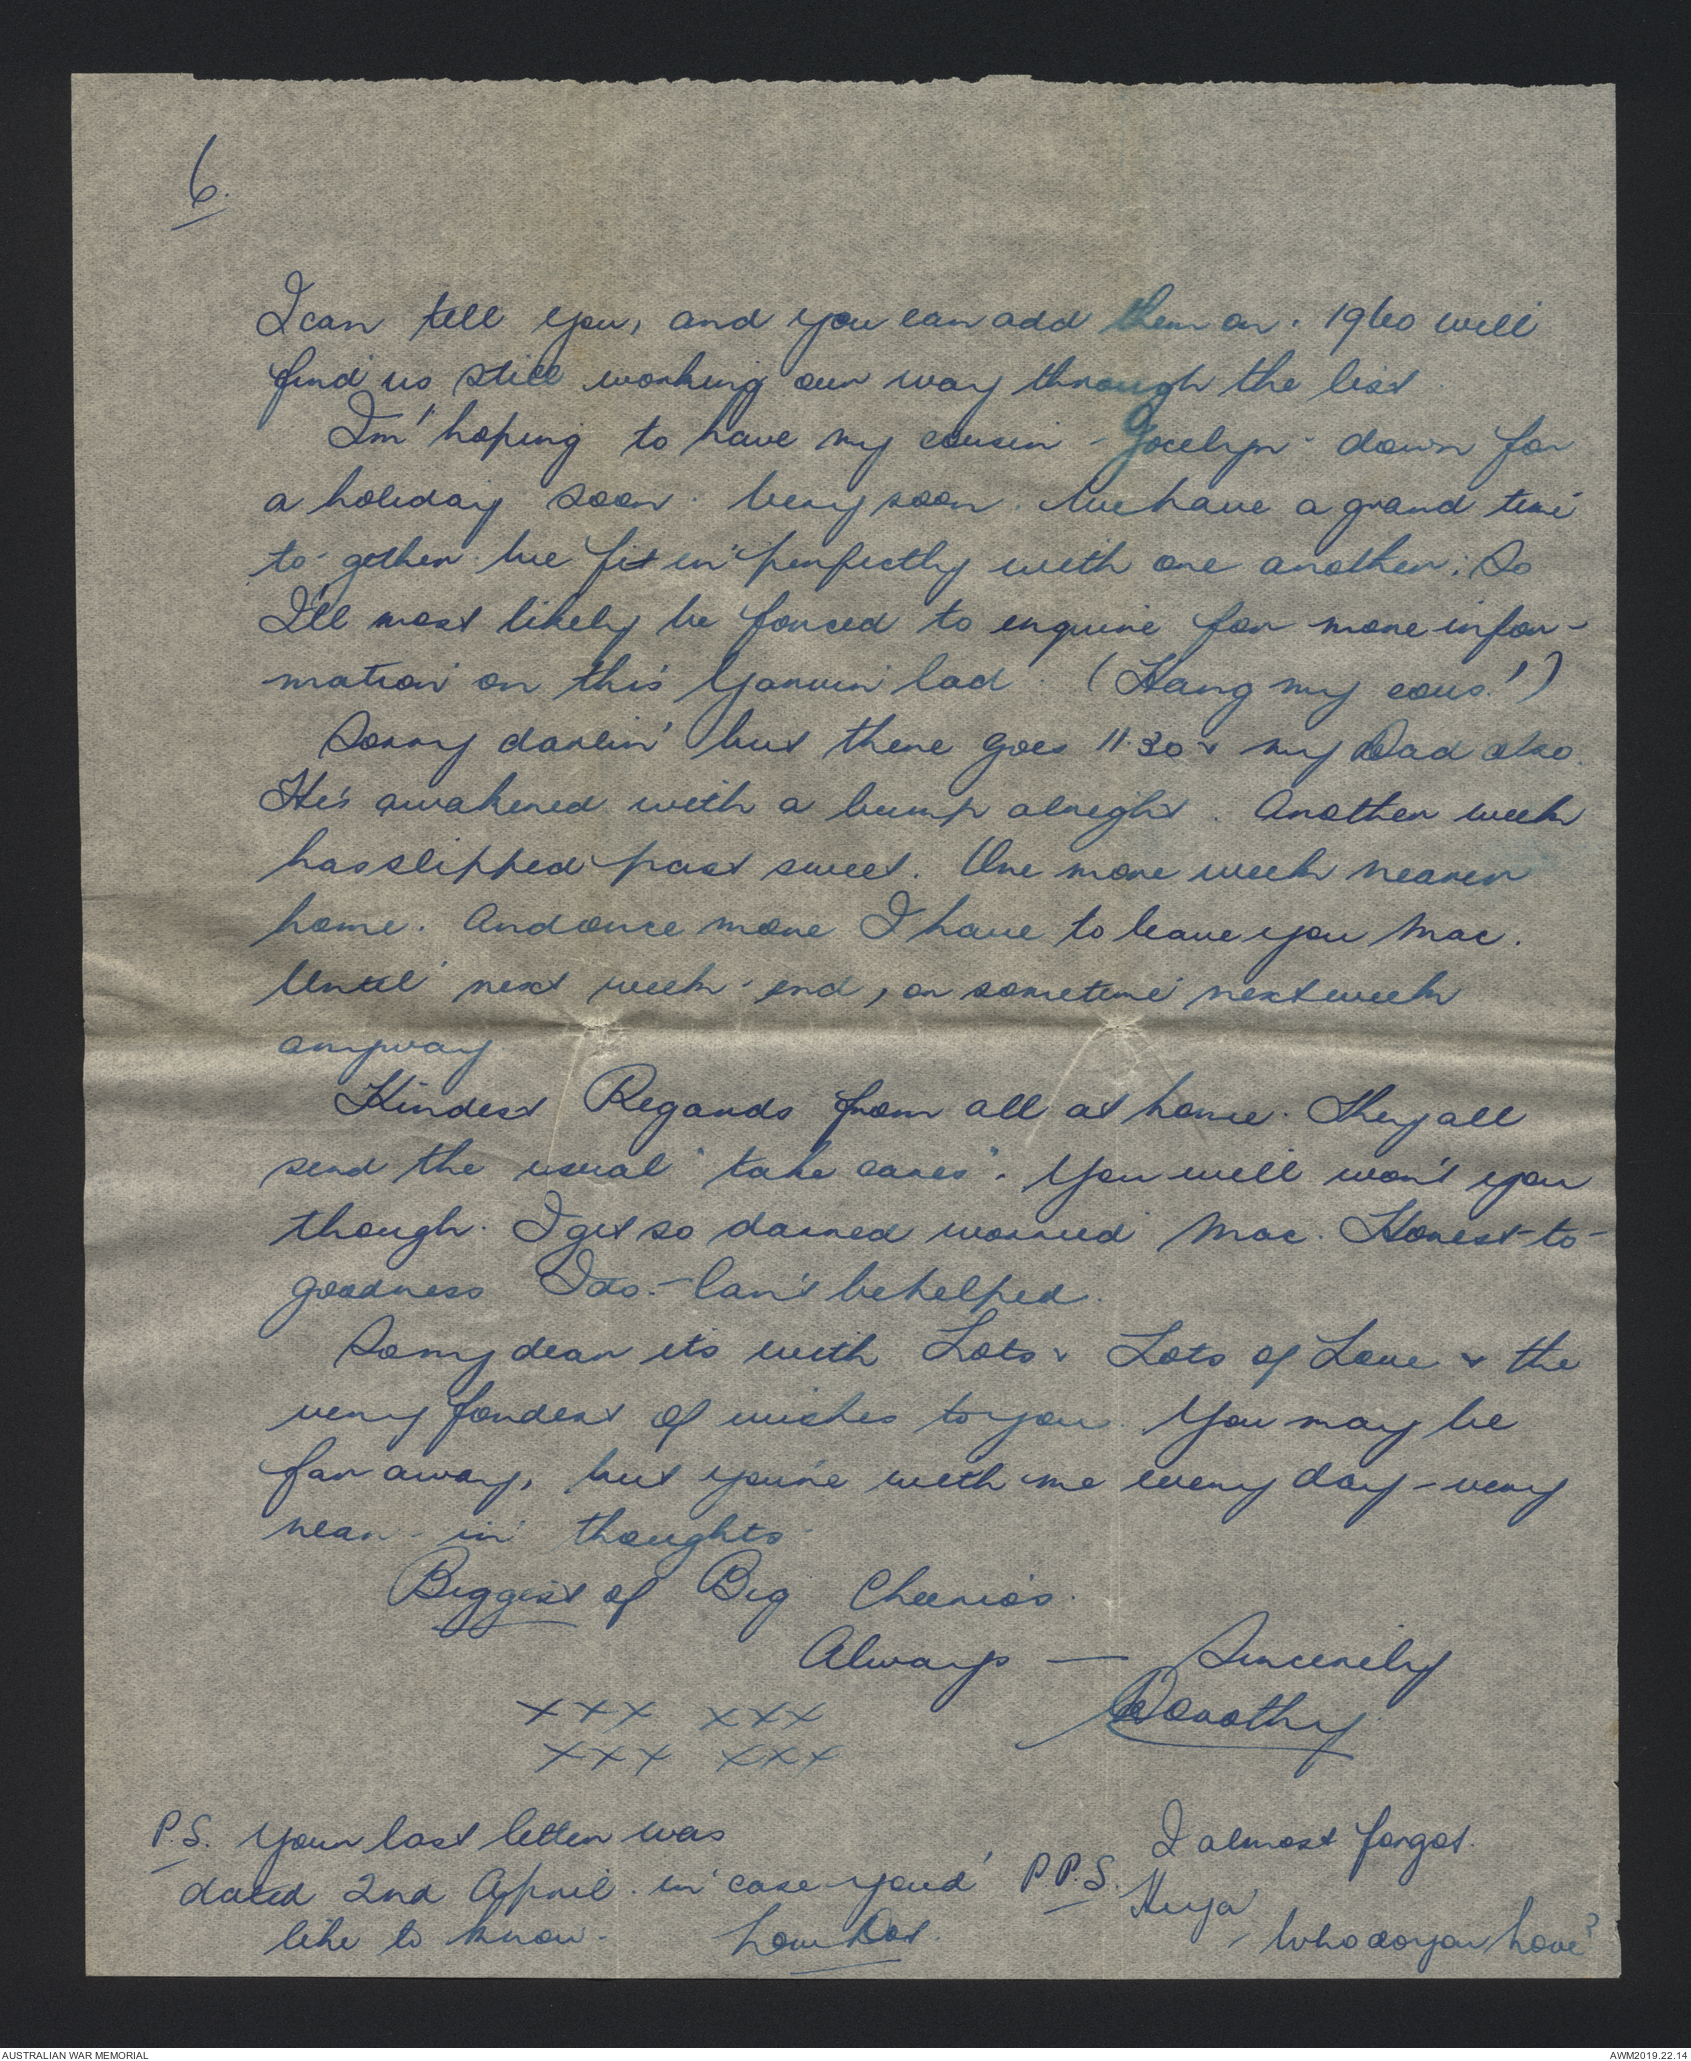 6.
I can tell you, and you can add them on. 1960 will
find us still working our way through the list.
I'm hoping to have my cousin - Jocelyn - down for
a holiday soon. Very soon. We have a grand time
to-gether. We fit in perfectly with one another. So
I'll most likely be forced to enquire for more infor-
mation on this Garvin lad (Hang my cous!')
Sorry darlin' but there goes 11.30 & my Dad also.
He's awakened with a bump alright. Another week
has slipped past sweet. One more week nearer
home. And once more I have to leave you Mac.
Until next week-end, or sometime next week
anyway
Kindest Regards from all at home. They all
send the usual "take cares". You will won't you
though. I get so darned worried Mac. Honest-to-
goodness I do. - Can't be helped.
So my dear its with Lots & Lots of Love & the
very fondest of wishes to you. You may be
far away, but you're with me every day - very
near - in thoughts.
Biggest of Big Cheerio's.
Always — Sincerely
Dorothy
xxx xxx
xxx xxx
P.S. Your last letter was
dated 2nd April. in case you'd
like to know. Dot.
P.P.S. I almost forgot.
Huya'
- Who do you love?
AUSTRALIAN WAR MEMORIAL
AWM2019.22.14